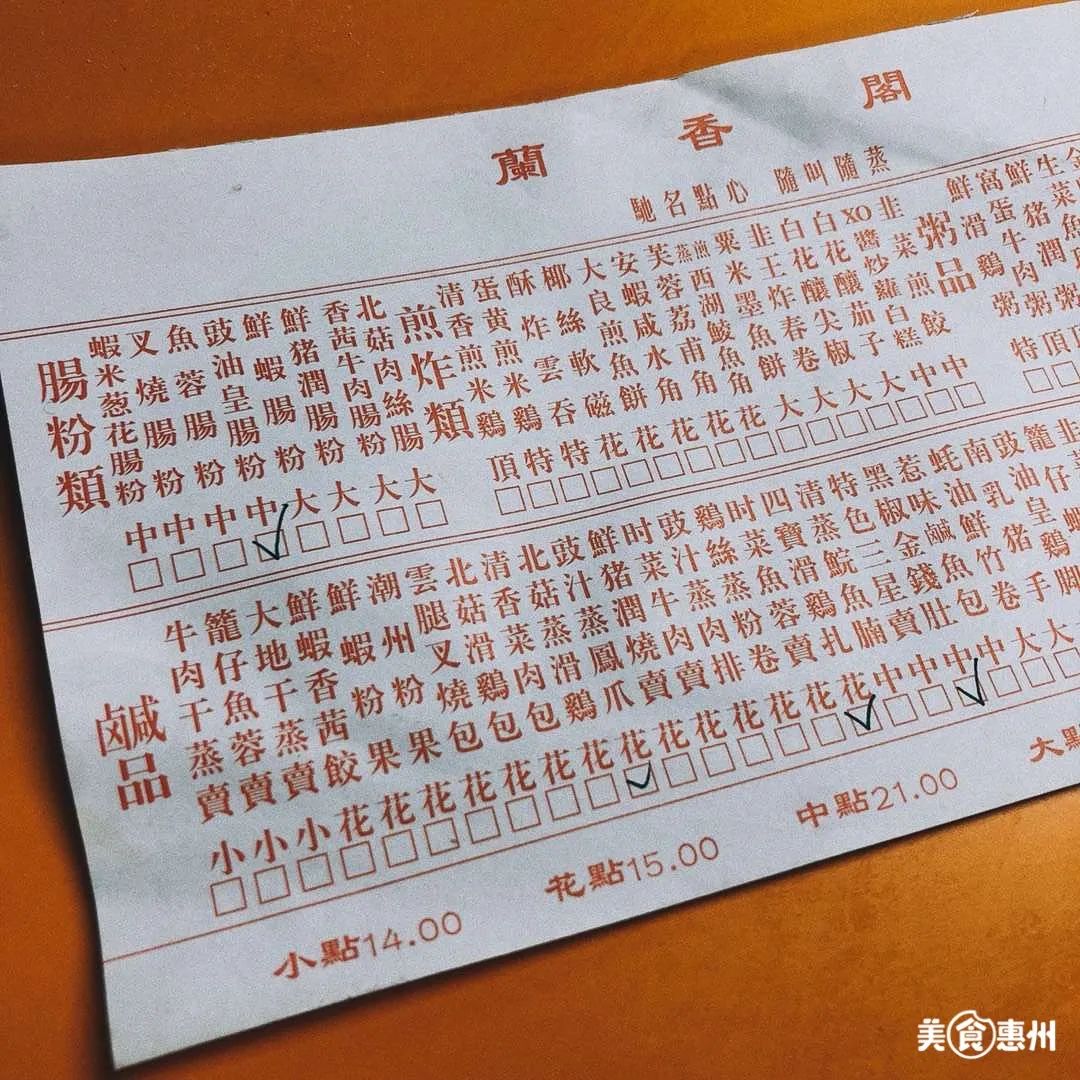 蘭香閣
馳名點心 隨叫隨蒸
腸粉類
蝦米葱花腸粉 中
叉燒腸粉 中
魚蓉腸粉 中
豉油呈腸粉 中
鮮蝦腸粉 大
鮮猪潤腸粉 大
香茜牛肉腸粉 大
北菇肉絲腸 大
煎炸類
清香煎米鷄 頂
蛋黄煎米鷄 特
酥炸雲吞 特
椰絲軟磁 花
大良煎魚餅 花
安蝦咸水角 花
芙蓉荔甫角 花
蒸煎西湖鯪魚角 花
粟米墨魚餅 大
韭王炸春卷 大
白花釀尖椒 大
白花釀茄子 大
XO醬炒蘿白糕 中
韭菜煎餃 中
粥品
鮮滑鷄粥 特
窩蛋牛肉粥 頂
鮮猪潤粥
生菜魚
鹹品
牛肉干蒸賣 小
籠仔魚蓉賣 小
大地干蒸賣 小
鮮蝦香茜餃 花
鮮蝦粉果 花
潮州粉果 花
雲腿叉燒包 花
北菇滑鷄包 花
清香菜肉包 花
北菇蒸滑鷄 花
豉汁蒸鳳爪 花
鮮猪潤燒賣 花
时菜牛肉賣 花
豉汁蒸肉排 花
鷄絲蒸粉卷 花
时菜魚蓉賣 花
四寶滑鷄扎 花
清蒸鯇魚腩 中
特色三星賣 中
黑椒金錢肚 中
惹味鹹魚包 中
蚝油鮮竹卷 大
南乳猪手 大
豉油呈鷄脚
小點14.00
花點15.00
中點21.00
大點
美食惠州